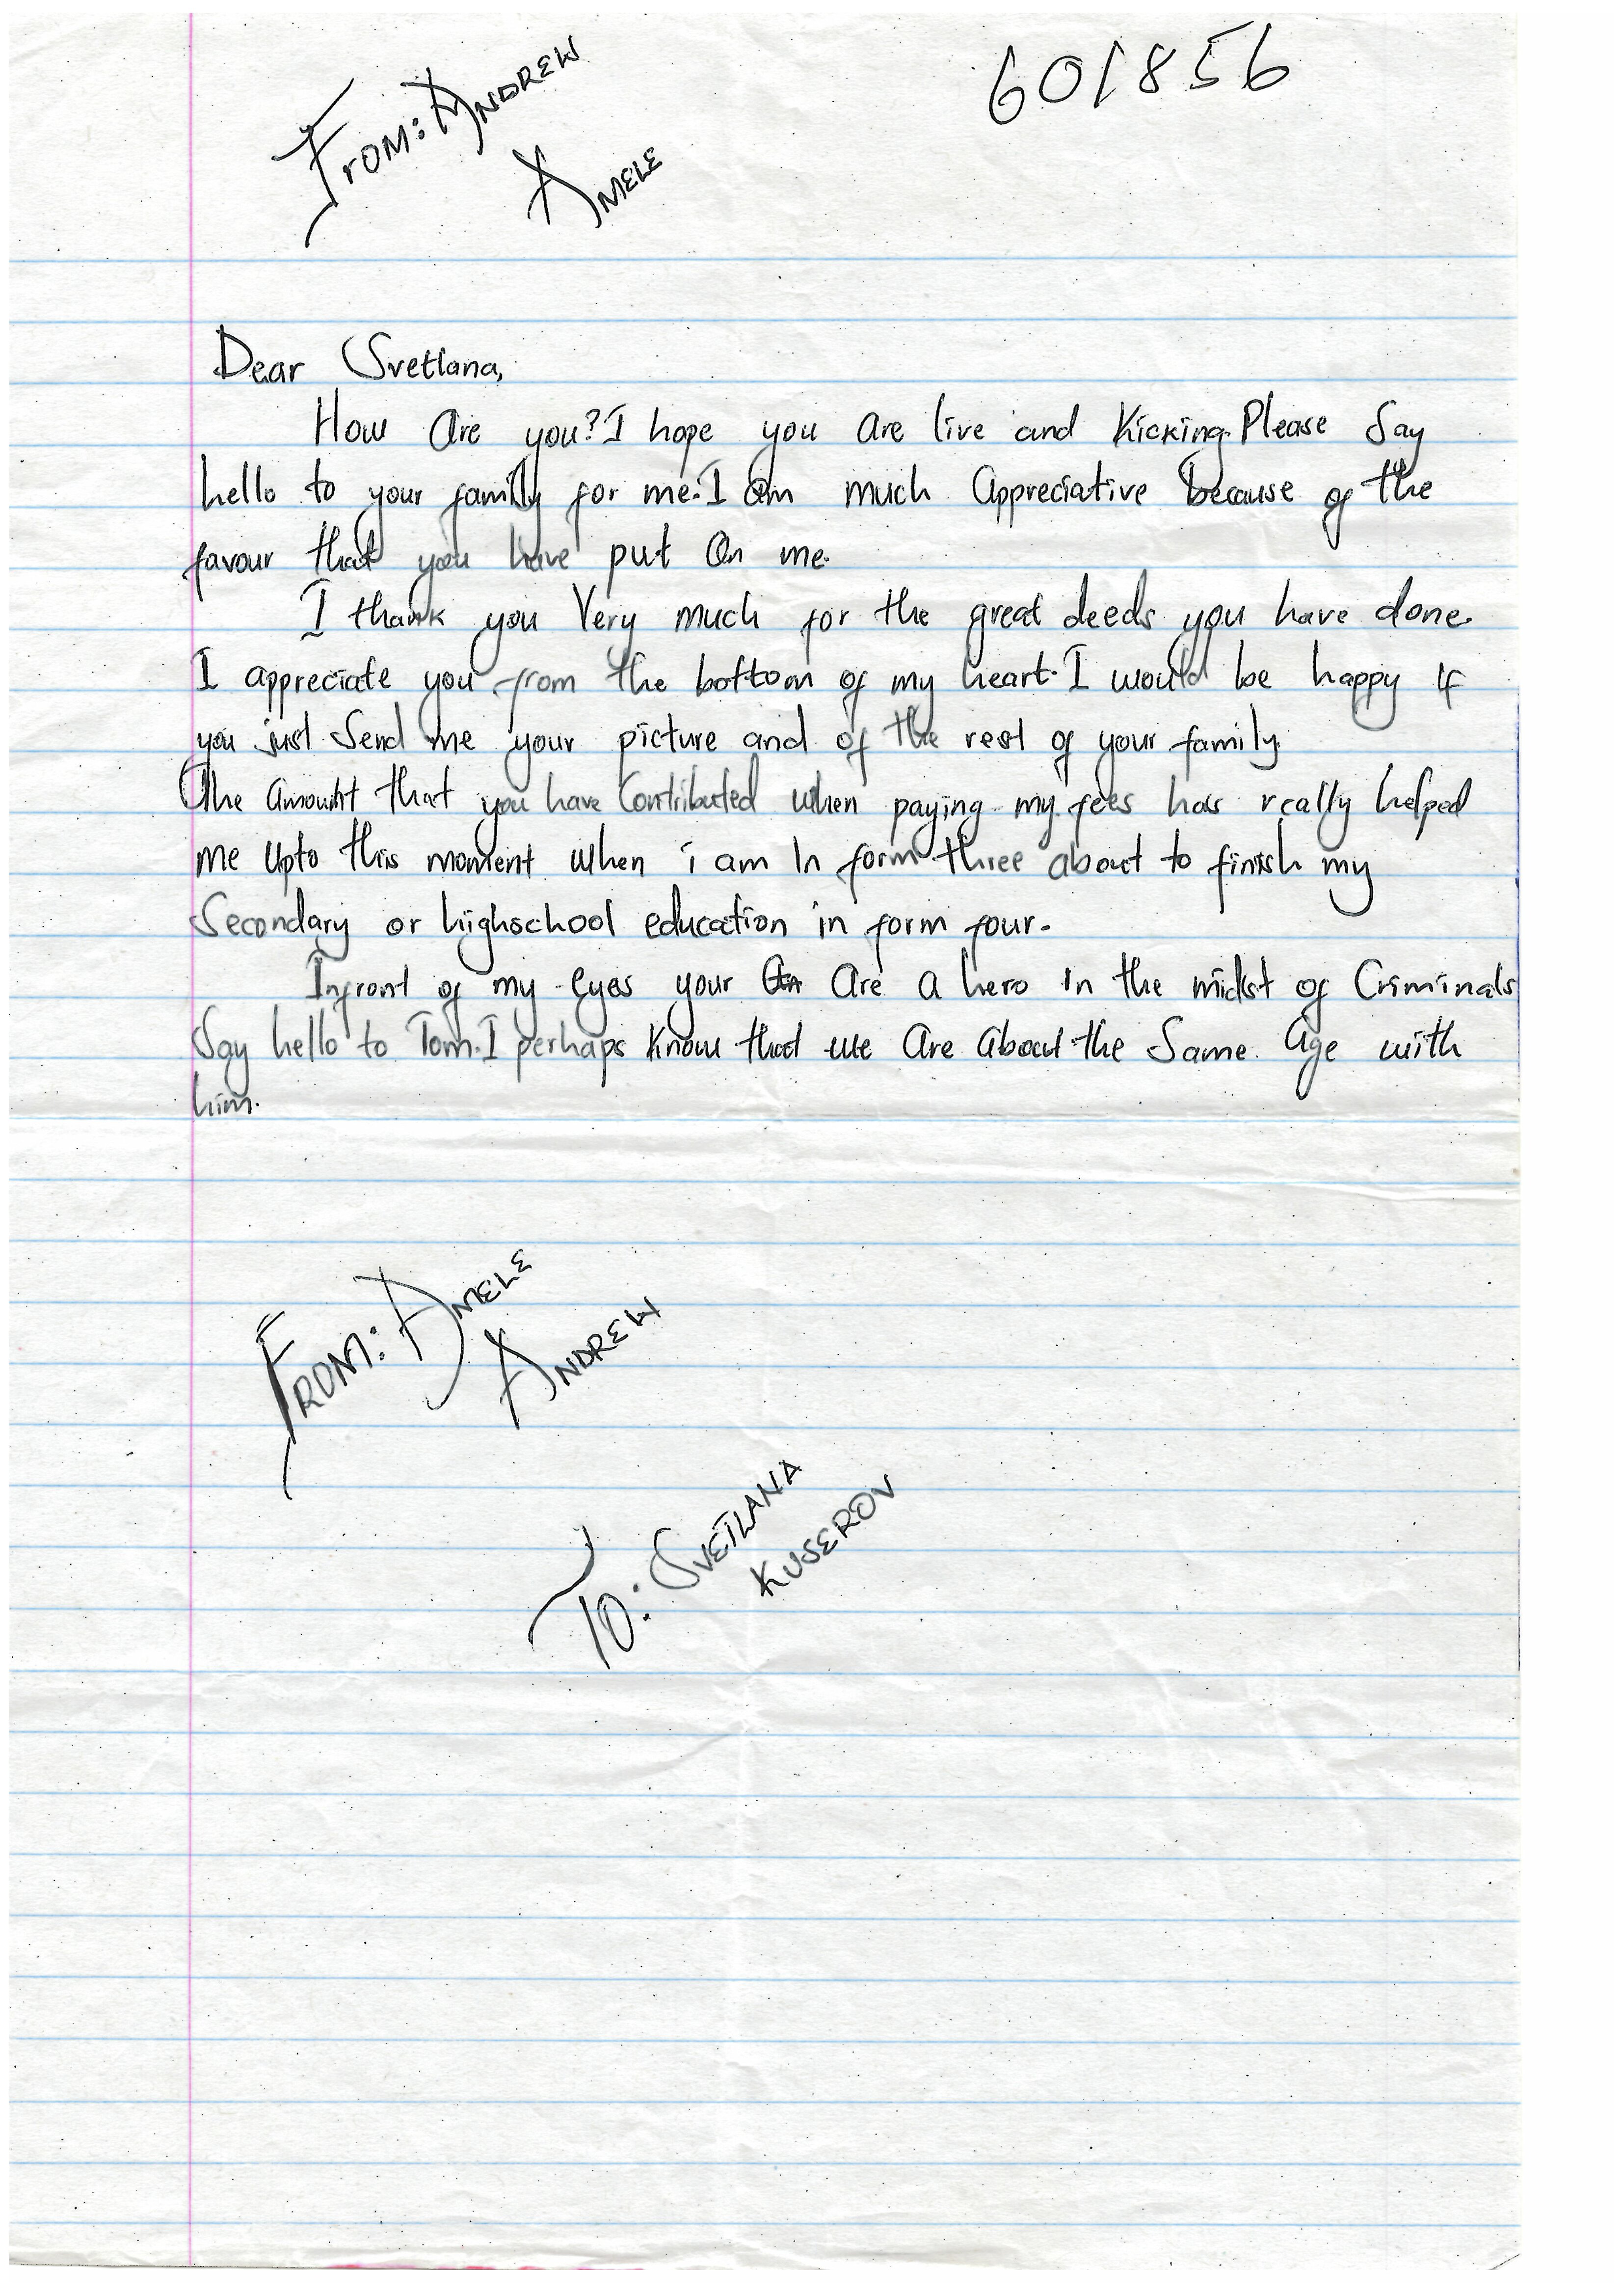 601856
FROM: ANDREW
AMELE
Dear Svetlana,
How are you? I hope you are live and Kicking. Please Say
hello to your family for me. I am much appreciative because of the
favour that you have put on me.
I thank you Very much for the great deeds you have done.
I appreciate you from the bottom of my heart. I would be happy If
you just Send me your picture and of the rest of your family.
The amount that you have contributed when paying my fees has really helped
me upto this moment when i am In form three about to finish my
Secondary or highschool education in form four.
Infront of my eyes your are a hero in the midst of Criminals
Say hello to Tom. I perhaps Know that we are about the Same age with
him.
FROM: AMELE
ANDREW
TO: SVETLANA
KUSEROV